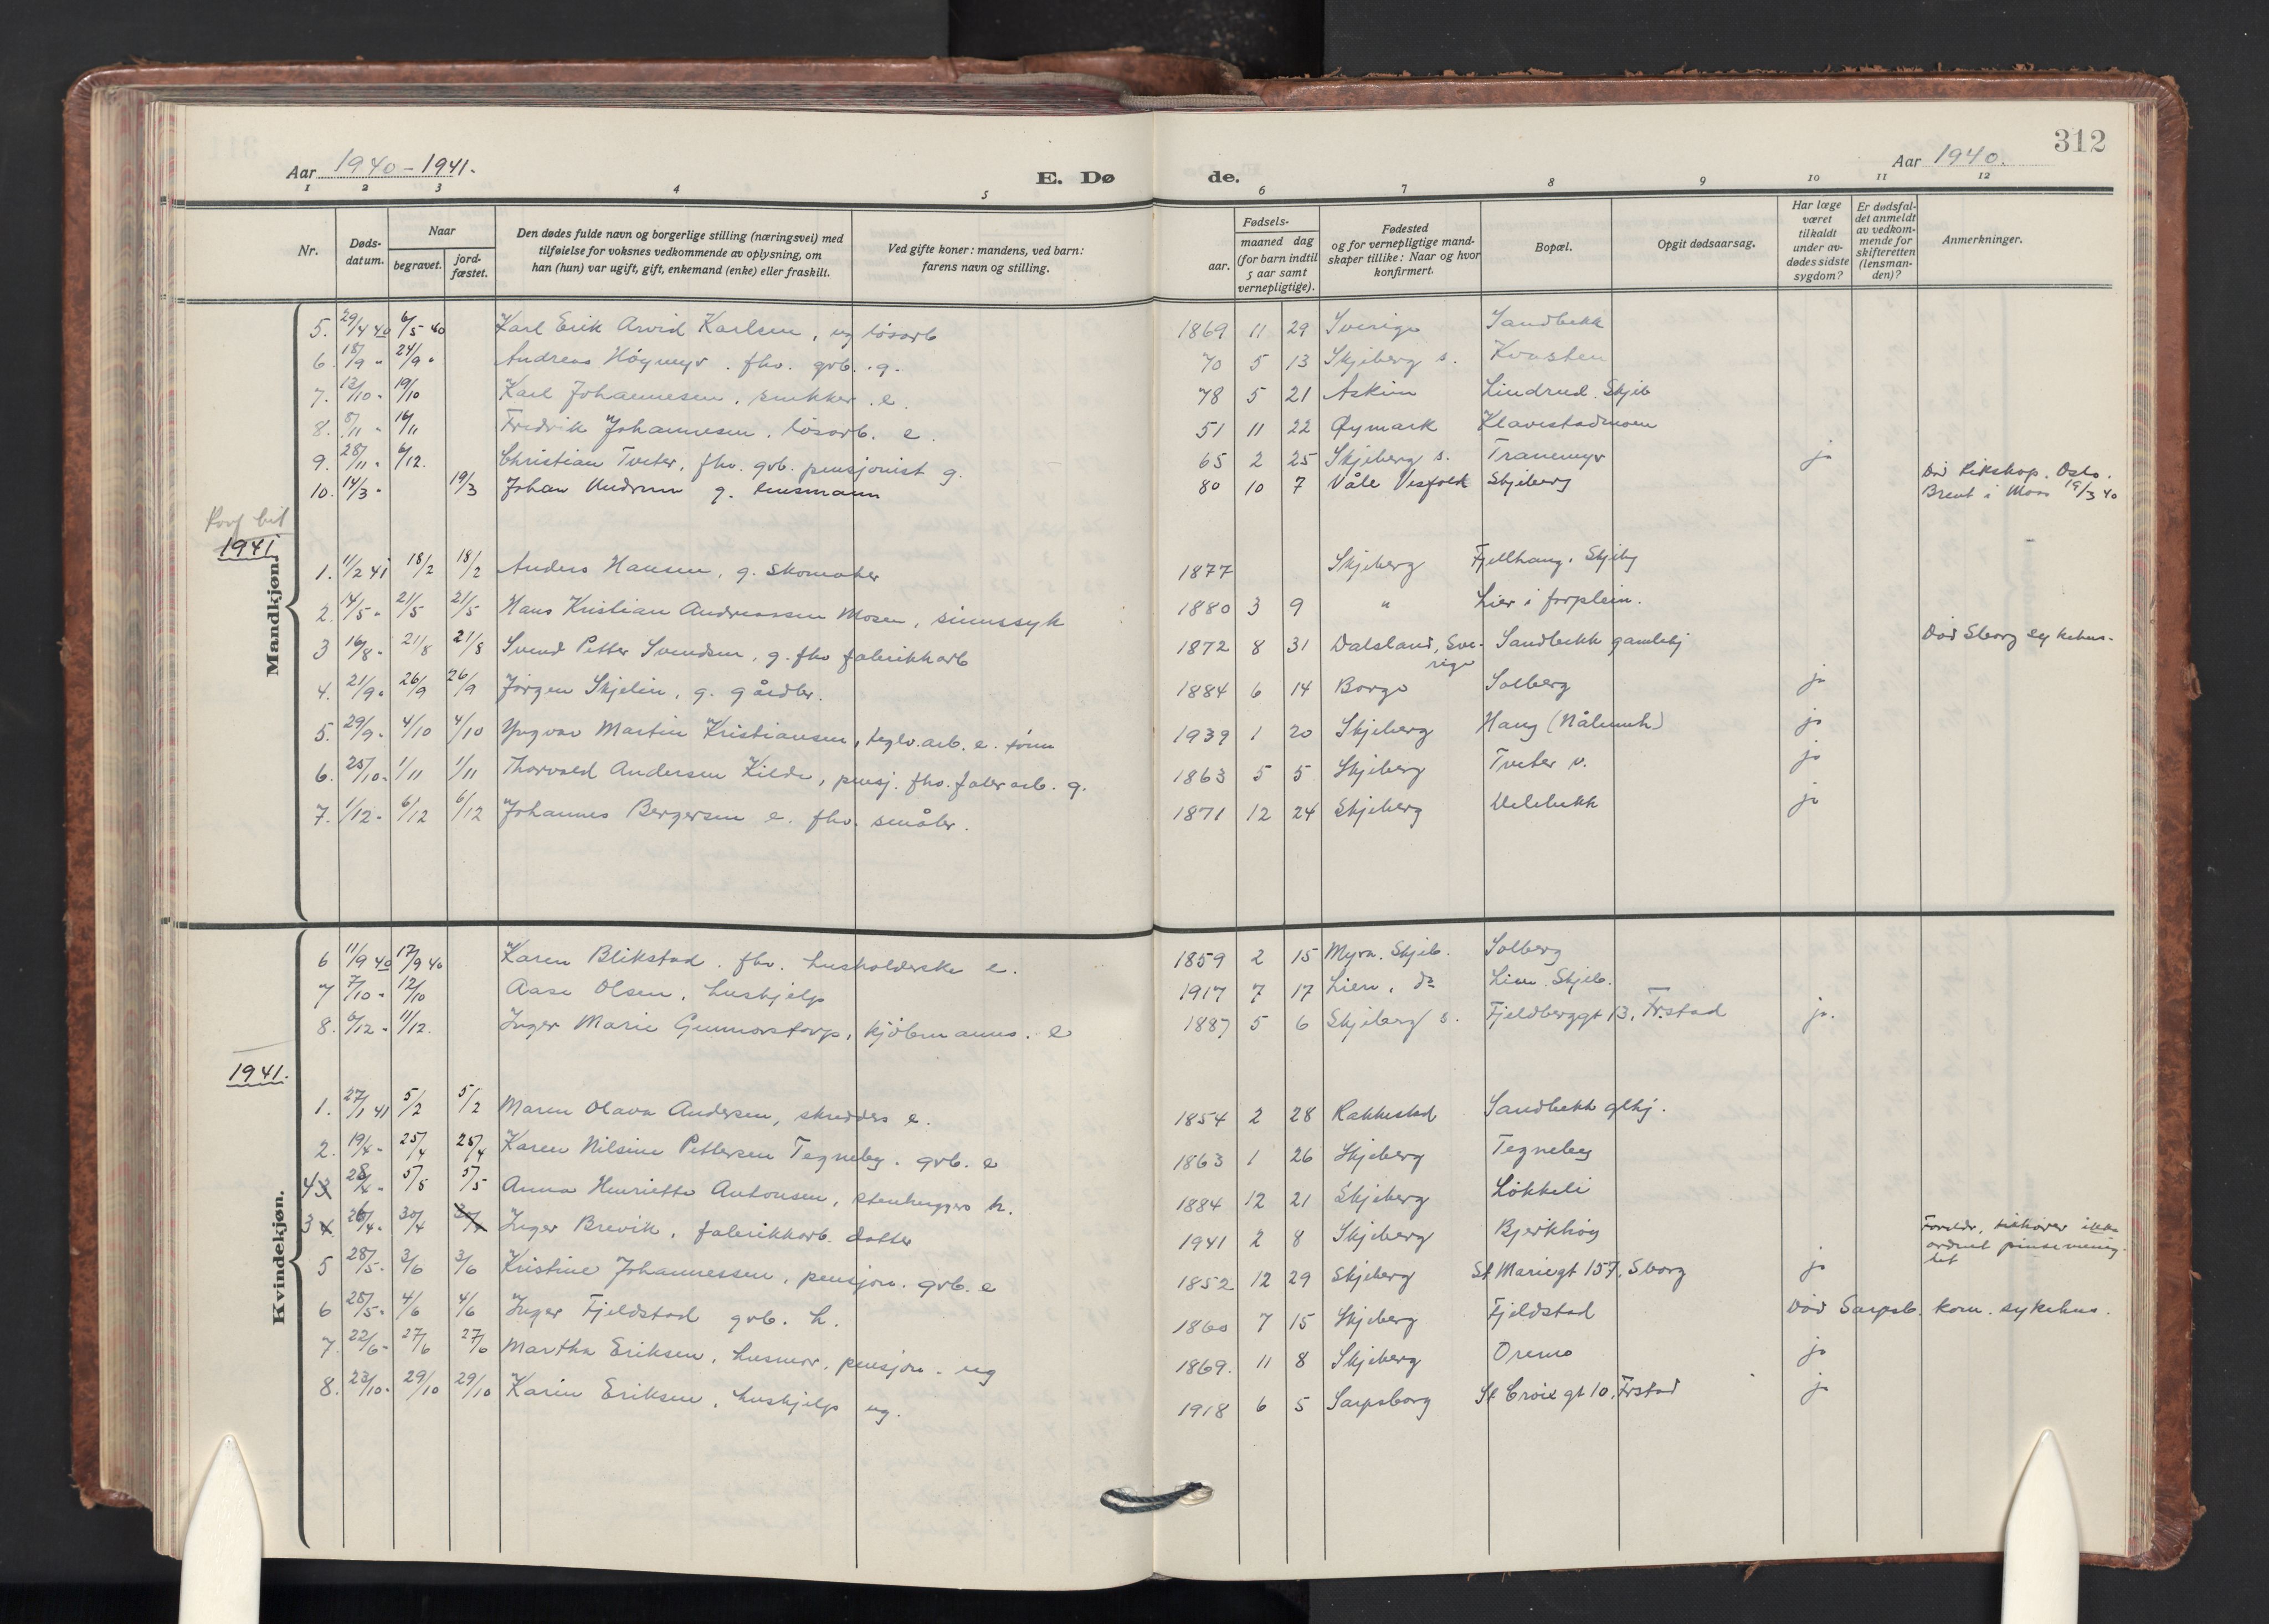 312
Aar 1940-1941.
E. Dø
de.
Aar 1940.
1 2 3 4 5 6 7 8 9 10 11 12
Nr.
Døds-
datum.
Naar
begravet.
jord-
fæstet.
Den dødes fulde navn og borgerlige stilling (næringsvei) med
tilføielse for voksnes vedkommende av oplysning, om
han (hun) var ugift, gift, enkemand (enke) eller fraskilt.
Ved gifte koner: mandens, ved barn:
farens navn og stilling.
Fødsels-
aar.
maaned dag
(for barn indtil
5 aar samt
vernepligtige).
Fødested
og for vernepligtige mand-
skaper tillike: Naar og hvor
konfirmert.
Bopæl.
Opgit dødsaarsag.
Har læge
været
tilkaldt
under av-
dødes sidste
sygdom?
Er dødsfal-
det anmeldt
av vedkom-
mende for
skifteretten
(lensman-
den)?
Anmerkninger.
Mandkjøn.
5. 29/4 40 6/5 40 Karl Erik Arvid Karlsen, ug løsarb 1869 11 29 Sverige Sandbekk
6. 18/9 " 24/9 " Andreas Höymyr. fhv. gvb. g. 70 5 13 Skjeberg s. Kvasten
7. 12/10 - 19/10 Karl Johannesen, snikker. e. 78 5 21 Askim Lindrud. Skjeb
8. 8/11 " 16/11 Fredrik Johannesen, løsarb. e. 51 11 22 Øymark Klavestadmoen
9. 28/11 - 6/12. Christian Tveter, fhv. gvb. pensjonist g. 65 2 25 Skjeberg s. Tranemyr ja
10. 14/3 - 19/3 Johan Undrum g. lensmann 80 10 7 Våle Vesfold Skjeberg Död Rikshop. Oslo.
Brent i Moss 19/3 40
1941
1. 11/2 41 18/2 18/2 Anders Hansen, g. Skomaker 1877 Skjeberg Fjellhaug. Skjebg
2. 14/5 - 21/5 21/5 Hans Kristian Andreassen Mosen, sinnssyk 1880 3 9 " Lier i forplein.
3 16/8 - 21/8 21/8 Svend Petter Svendsen, g. fhv fabrikkarb 1872 8 31 Dalsland, Sve-
rige Sandbekk gamlehj Död Sborg sykehus.
4. 21/9 - 26/9 26/9 Jörgen Skjelin, g. gårdbr. 1884 6 14 Borge Solberg ja
5. 29/9 - 4/10 4/10 Yngvar Martin Kristiansen, teglv.arb. e. sönn 1939 1 20 Skjeberg Haug ja
6. 25/10 - 1/11 1/11 Thorvald Andersen Kilde, pensj. fhv. fabr arb. g. 1863 5 5 Skjeberg Tveter v. ja
7. 1/12 - 6/12 6/12 Johannes Bergersen e. fhv. småbr. 1871 12 24 Skjeberg Ulebekk ja
Kvindekjøn.
6 11/9 40 17/9 40 Karen Blikstad. fhv. husholderske e. 1859 2 15 Myra. Skjeb. Solberg
7 7/10 - 12/10 Aase Olsen, hushjelp 1917 7 17 Lien, do Lien. Skjeb.
8. 6/12 - 11/12. Inger Marie Gunnarstorp, kjöbmanns. e 1887 5 6 Skjeberg s. Fjeldberggt 13, Fr.stad ja.
1941.
1. 27/1 41 5/2 5/2 Maren Olava Andersen, skredders e. 1854 2 28 Rakkestad Sandbekk glhj.
2. 19/4 - 25/4 25/4 Karen Nilsine Pettersen Tegneby. gvb. e 1863 1 26 Skjeberg Tegneby
4 3 28/4 - 5/5 5/5 Anna Henriette Antonsen, stenhuggers h. 1884 12 21 Skjeberg Lökkeli
3 4 26/4 - 30/4 Inger Brevik, fabrikkarb. datter 1941 2 8 Skjeberg Bjerkhög Foreldr. tilhörer ikke
ordnet pinsemenig-
het
5 28/5 - 3/6 3/6 Kristine Johannessen, pensjon. gvb. e 1852 12 29 Skjeberg St Mariegt 157, Sborg ja
6 28/5 - 4/6 4/6 Inger Fjeldstad gvb. h. 1860 7 15 Skjeberg Fjeldstad Död Sarpsb. kom. sykehus.
7. 22/6 - 27/6 27/6 Martha Eriksen, husmor, pensjon. ug 1869. 11 8 Skjeberg Oremo ja
8. 23/10 - 29/10 29/10 Karin Eriksen, hushjelp ug. 1918 6 5 Sarpsborg St Croix gt 10, Frstad ja